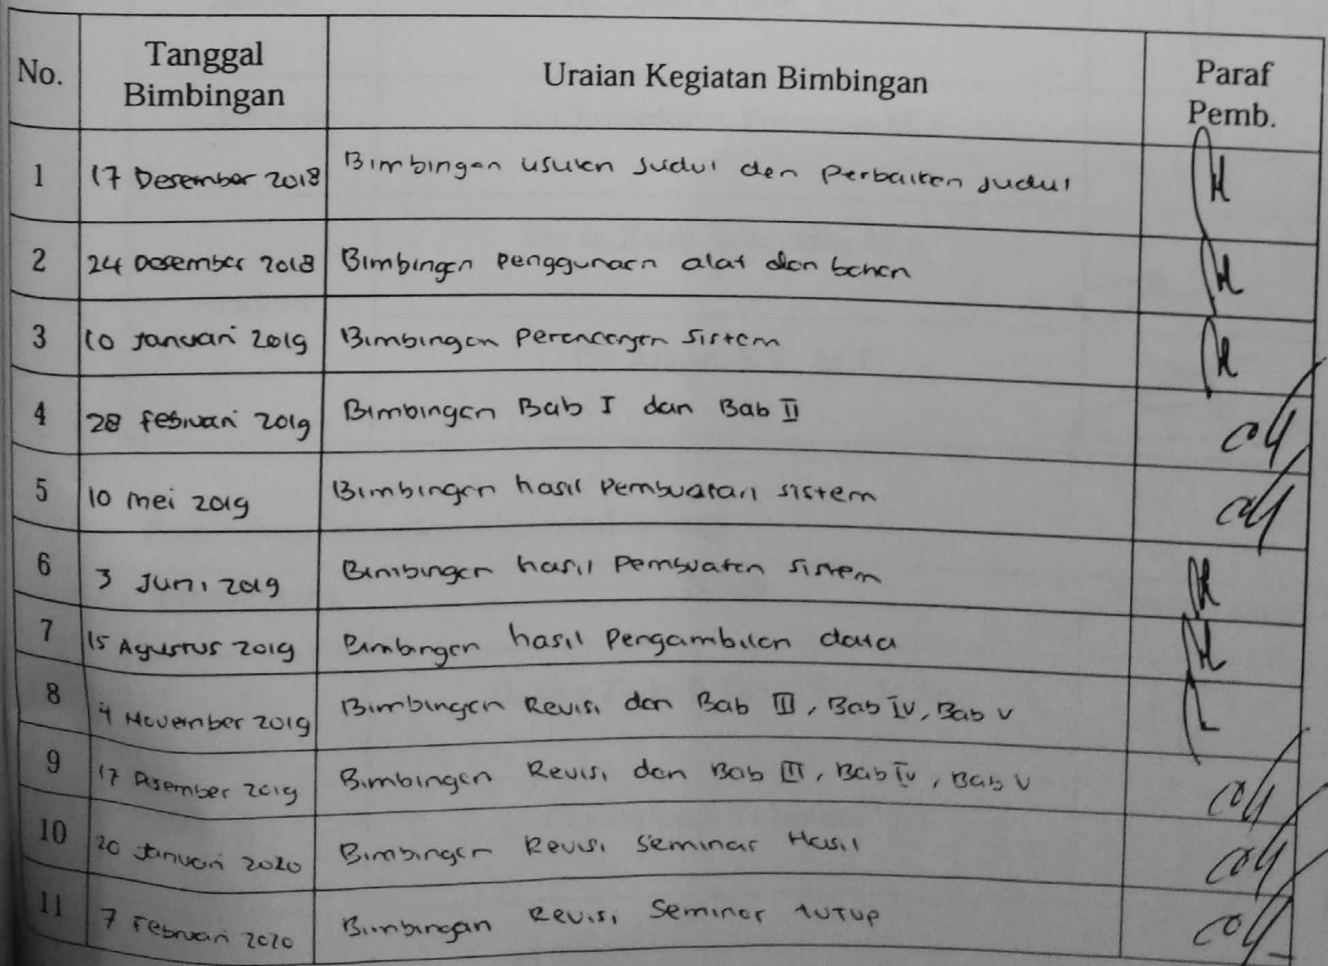 No. Tanggal Bimbingan Uraian Kegiatan Bimbingan Paraf Pemb.
1 17 Desember 2018 Bimbingan usulan Judul dan Perbaikan Judul
2 24 Desember 2018 Bimbingan Penggunaan alat dan bahan
3 10 Januari 2019 Bimbingan Perancangan Sistem
4 28 Februari 2019 Bimbingan Bab I dan Bab II
5 10 Mei 2019 Bimbingan hasil Pembuatan sistem
6 3 Juni 2019 Bimbingan hasil Pembuatan Sistem
7 15 Agustus 2019 Bimbingan hasil Pengambilan data
8 4 November 2019 Bimbingan Revisi dan Bab III, Bab IV, Bab V
9 17 Desember 2019 Bimbingan Revisi dan Bab III, Bab IV, Bab V
10 20 Januari 2020 Bimbingan Revisi Seminar Hasil
11 7 Februari 2020 Bimbingan Revisi Seminar tutup